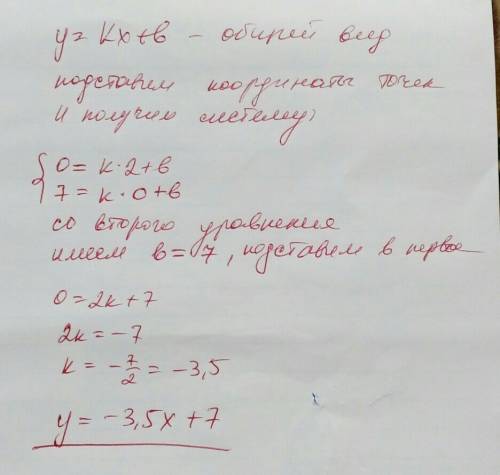 y = kx+b – общий вид
подставим координаты точек
и получим систему:
{ 0 = k·2+b
7 = k·0+b
со второго уравнения
имеем b = 7, подставим в первое
0 = 2k+7
2k = -7
k = -7/2 = -3,5
y = -3,5x +7